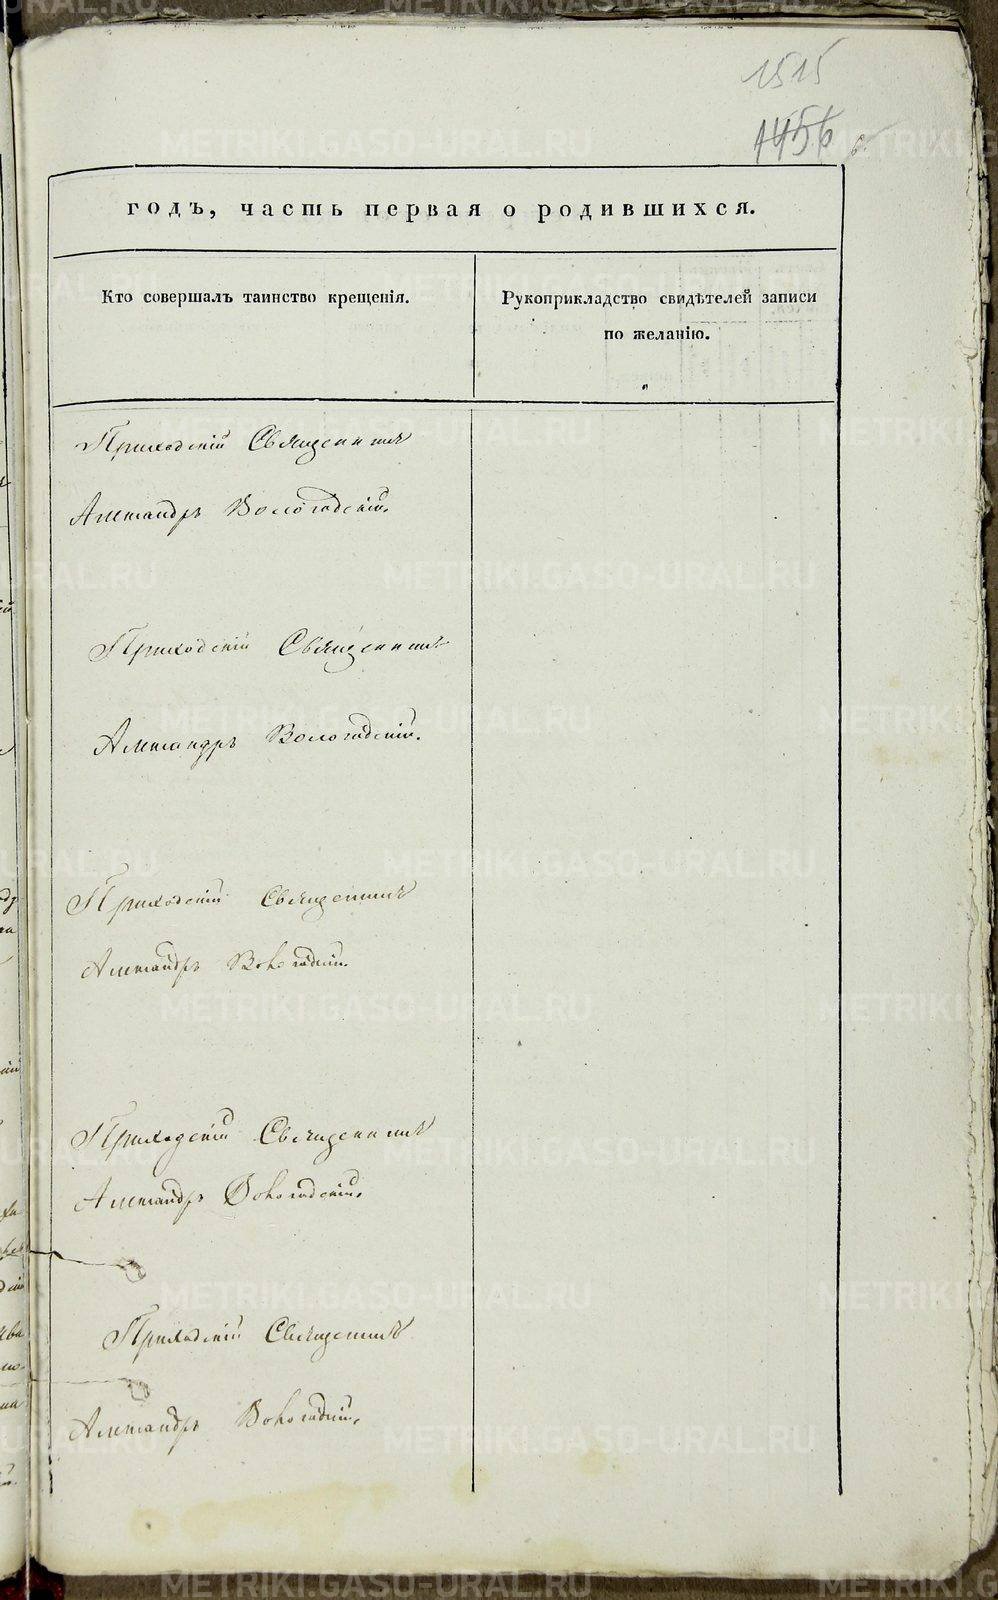 1515
1456
годъ, часть первая о родившихся.
Кто совершалъ таинство крещенія.
Рукоприкладство свидѣтелей записи
по желанію.
Приходскій Священникъ
Александръ Вологодскій.
Приходскій Священникъ
Александръ Вологодскій.
Приходскій Священникъ
Александръ Вологодскій.
Приходскій Священникъ
Александръ Вологодскій.
Приходскій Священникъ
Александръ Вологодскій.
METRIKI.GASO-URAL.RU